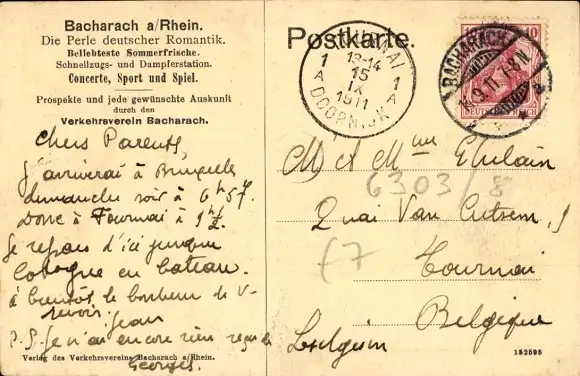 Bacharach a/Rhein.
Die Perle deutscher Romantik.
Beliebteste Sommerfrische.
Schnellzugs- und Dampferstation.
Concerte, Sport und Spiel.
Prospekte und jede gewünschte Auskunft
durch den
Verkehrsverein Bacharach.
Chers Parents,
J'arriverai à Bruxelles
dimanche soir à 6h57.
Donc à Tournai à 9h½.
Je repars d'ici jusque
Cologne en bateau.
à bientôt le bonheur de v-
revoir. Jean
P.S. Je n'ai encore rien reçu de
Georges.
Verlag des Verkehrsvereins Bacharach a/Rhein.
Postkarte.
TOURNAI
1 13-14 1
A 15 A
IX
1911
DOORNIJK
BACHARACH
9.11. 7-8N
10
DEUTSCHES REICH
M. et Mme Ghilain
6303/8
Quai Van Cutsem, 9
f7
Tournai
Belgique
Belgien
152595